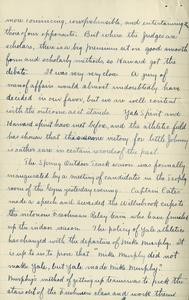 more convincing, comprehensible, and entertaining than
those of our opponents. But where the judges are
scholars, there is a big premium set on good smooth
form and scholarly methods so Harvard got the
debate. It was very very close. A jury of
men of affairs would almost undoubtedly have
decided in our favor, but we are well content
with the outcome as it stands. Yale Spirit and
Harvard spirit have met before, and the athletic field
has shown that victory for little Johnnie
is rather sure in certain records of the past.
The Spring Outdoor Track season was formally
inaugurated by a meeting of candidates in the trophy
room of the Gym yesterday evening. Captain Cates
made a speech and awarded the Wellbrook cups to
the victorious Freshman Relay team who have finished
up the indoor season. The policy of Yale athletics
has changed with the departure of Mike Murphy. It
is up to us to prove that Mike Murphy did not
make Yale, but Yale made Mike Murphy.
Murphy's method of getting up teams was to pick the
stars out of the Freshman class and work them